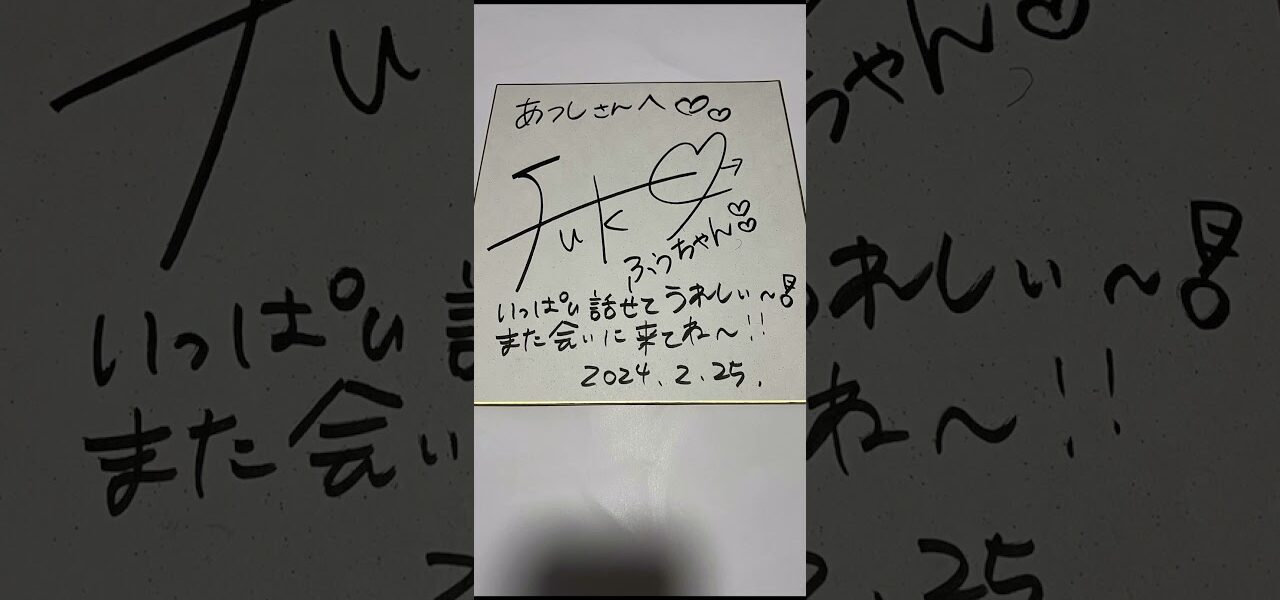 あつしさんへ♡♡
Fuk
ふぅちゃん♡♡
いっぱい話せてうれしぃ〜!
また会いに来てね〜!!
2024.2.25.